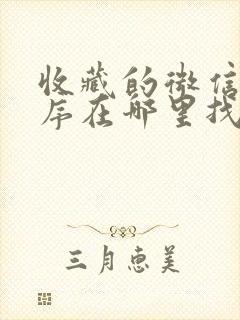 收藏的微信
序在哪里找
三月惠美